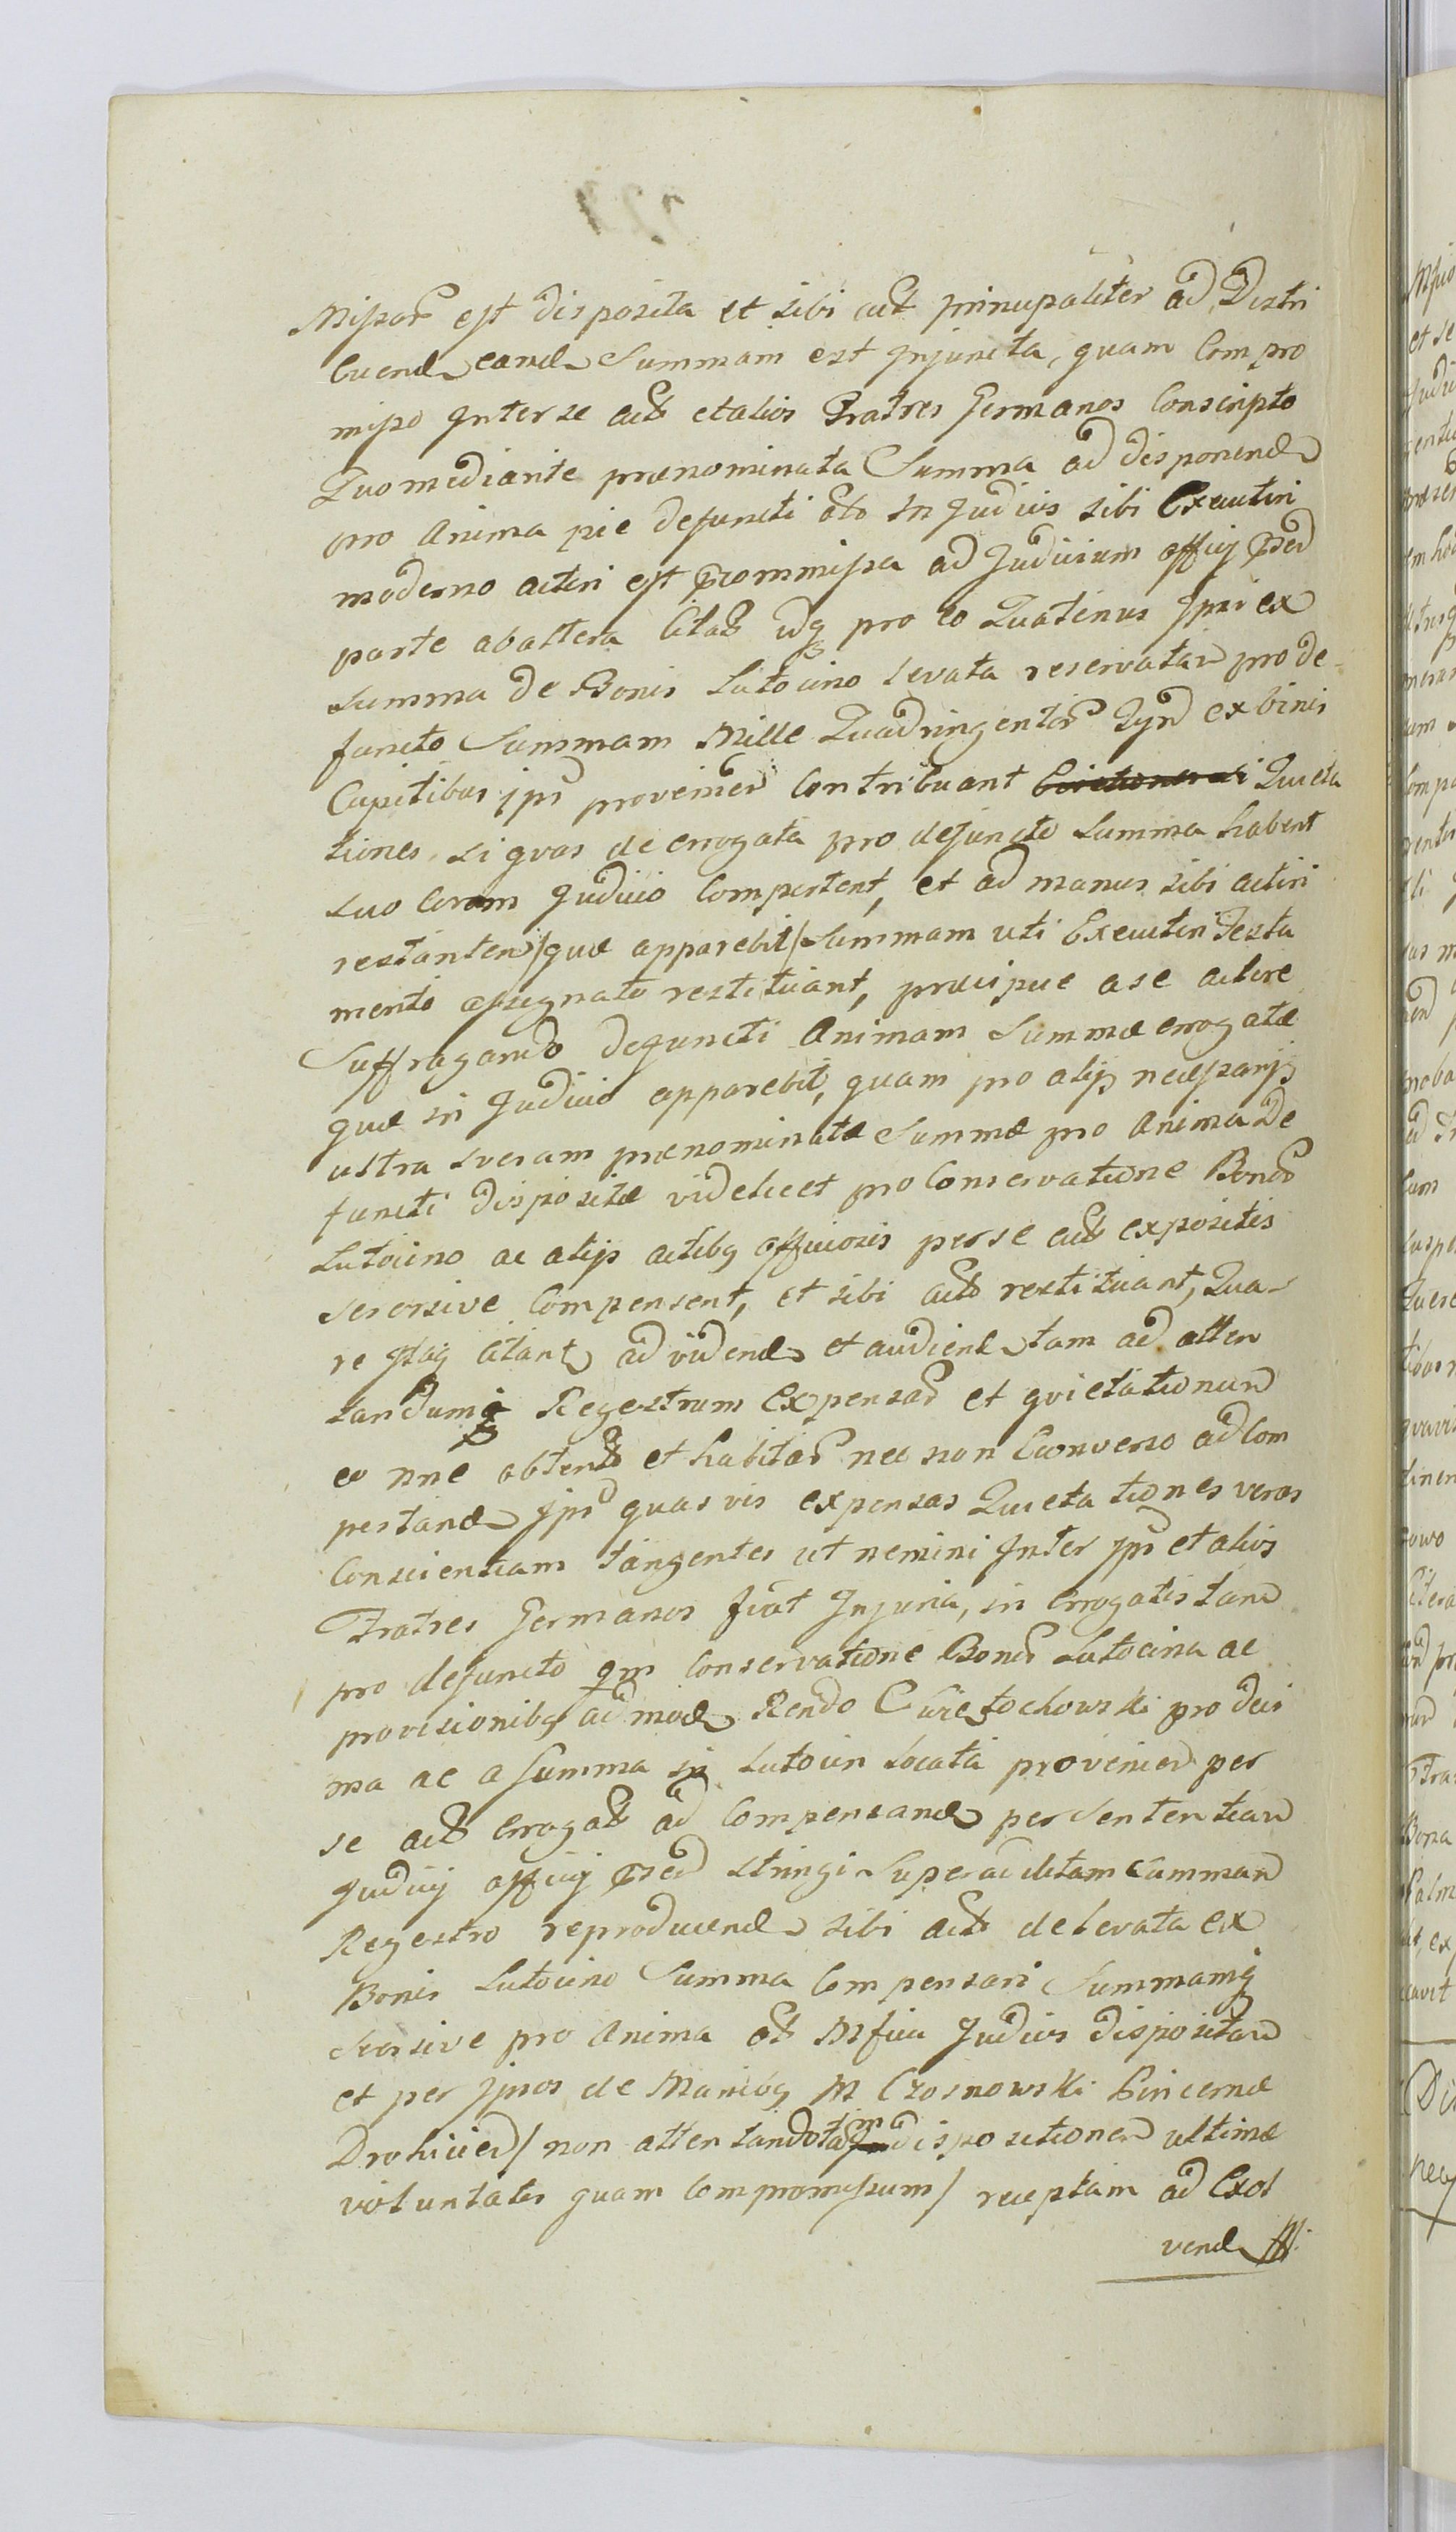 Missar est disposita et sibi act principaliter ad Distri
buend eand Summam est Injuncta, quam Compro
misso Inter se act et alios Fratres Germanos Conscripto
Quo mediante prænominata Summa ad disponend
pro Anima pie defuncti olo in Judiciis sibi Executori
moderno actori est promissa ad Judicium Officij præd
parte ab altera Citat idq pro eo Quatinus Ipsi ex
Summa de Bonis Lutocino levata reservatam pro de-
functo Summam Mille Quadringentor Tynf ex binis
Capitibus ips provenien Contribuant Quieta
tiones, si quas de errogata pro defuncto Summa habent
suo Coram Judicio Comportent, et ad manus sibi actori
restantem /quæ apparebit/ Summam uti Executori Testa
mento assignato restituant, præcipue a se actore
Suffragando defuncti Animam Summæ errogatæ
quæ in Judicio apparebit, quam pro alijs necessarijs
ultra veram prænominatæ Summæ pro Anima De
functi dispositæ videlicet pro Conservatione Bonor
Lutocino ac alijs actibq officiosis per se act expositis
seorsive Compensent, et sibi act restituant, Qua-
re Itaq Citant ad vidend et audiend tam ad atten
tandumq Regestrum Expensar et quietationum
eo nne obtent et habitar nec non Econverso ad Com
portand Ips quasvis expensas Quietationes veras
Conscientiam tangentes ut nemini Inter ips et alios
Fratres Germanos fiat Injuria, in errogatis tam
pro defuncto qm Conservatione Bonor Lutocina ac
provisionibq admod Rendo Cwietochowski pro deci
ma ac a summa in Lutocin locata provenien per
se act errogat ad Compensand per Sententiam
Judicij officij præd stringi Super ac dictam Summam
Regestro reproducend sibi act de levata ex
Bonis Lutocino Summa Compensari Summamq
seorsive pro Anima olt Mfici Judicis dispositam
et per ipsos de Manibq M Czosnowski Pincernæ
Drohicien / non attentando tam dispositionem ultimæ
voluntatis quam Compromissum / receptam ad Exol
vend